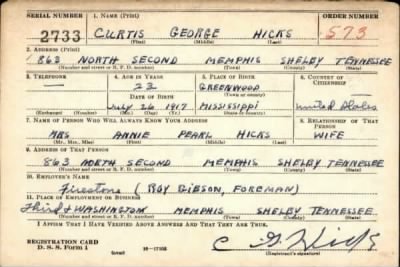 SERIAL NUMBER 1. NAME (Print) ORDER NUMBER
2733 CURTIS GEORGE HICKS 573
(First) (Middle) (Last)
2. ADDRESS (Print)
863 NORTH SECOND MEMPHIS SHELBY TENNESSEE
(Number and street or R. F. D. number) (Town) (County) (State)
3. TELEPHONE 4. AGE IN YEARS 5. PLACE OF BIRTH 6. COUNTRY OF CITIZENSHIP
— 23 GREENWOOD
DATE OF BIRTH (Town or county)
July 26 1917 MISSISSIPPI United States
(Exchange) (Number) (Mo.) (Day) (Yr.) (State or country)
7. NAME OF PERSON WHO WILL ALWAYS KNOW YOUR ADDRESS 8. RELATIONSHIP OF THAT PERSON
MRS ANNIE PEARL HICKS WIFE
(Mr., Mrs., Miss) (First) (Middle) (Last)
9. ADDRESS OF THAT PERSON
863 NORTH SECOND MEMPHIS SHELBY TENNESSEE
(Number and street or R. F. D. number) (Town) (County) (State)
10. EMPLOYER'S NAME
Firestone (ROY GIBSON, FOREMAN)
11. PLACE OF EMPLOYMENT OR BUSINESS
Third & WASHINGTON MEMPHIS SHELBY TENNESSEE
(Number and street or R. F. D. number) (Town) (County) (State)
I AFFIRM THAT I HAVE VERIFIED ABOVE ANSWERS AND THAT THEY ARE TRUE.
REGISTRATION CARD
D. S. S. Form 1 C G Hicks
(over) 16—17105 (Registrant's signature)